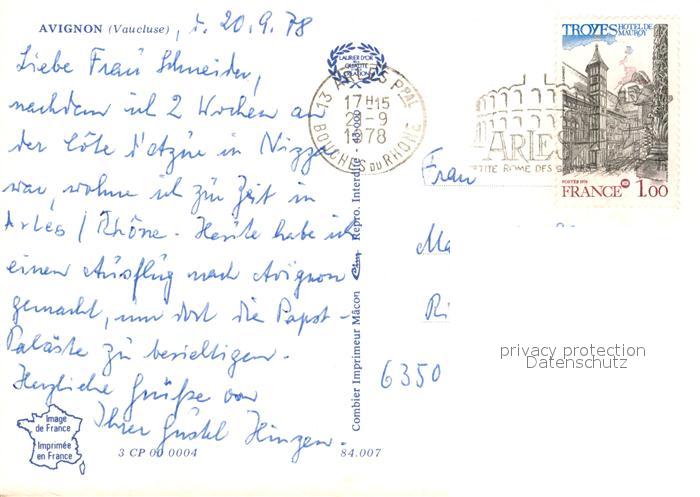 AVIGNON (Vaucluse), d. 20.9.78
Liebe Frau Schneider,
nachdem ich 2 Wochen an
der Côte d'Azur in Nizza
war, wohne ich zur Zeit in
Arles / Rhône. Heute habe ich
einen Ausflug nach Avignon
gemacht, um dort die Papst-
Paläste zu besichtigen.
Herzliche Grüße von
Ihrer Gustel Hinzen.
Image
de France
Imprimée
en France
3 CP 00 0004
84.007
LAURIER D'OR
QUALITÉ
Combier Imprimeur Mâcon Cim Repro. Interdite
13 ARLES Ppal
17H15
-9
1978
BOUCHES DU RHÔNE
ARLES
PETITE ROME DES
TROYES HOTEL DE
MAUROY
POSTES 1978
FRANCE 1.00
Frau
Ma
Ri
6350
privacy protection
Datenschutz